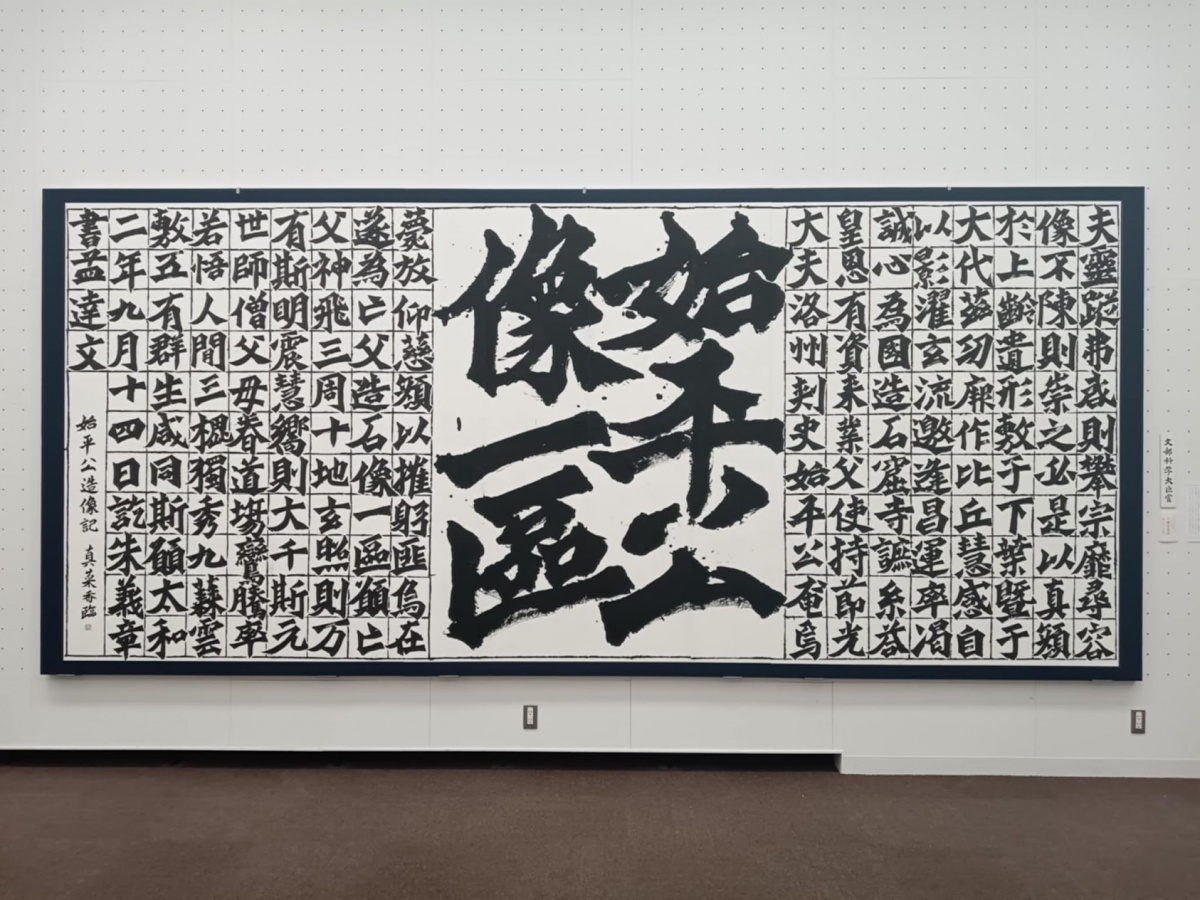 夫靈蹤弗啓則攀宗靡尋容
像不陳則崇之必是以真顏
於上齡遺形敷于下葉曁于
大代茲功厥作比丘慧成自
以影濯玄流邀逢昌運率渴
誠心為國造石窟寺讌系荅
皇恩有資来業父使持節光
大夫洛州刾史始平公奄焉
始平公
像一區
薨放仰慈顏以摧躬匪烏在
遂為亡父造石像一區願亡
父神飛三周十地玄照則万
有斯明震慧嚮則大千斯元
世師僧父母眷道場鸞騰率
若悟人間三槐獨秀九蕀雲
敷五有群生咸同斯願太和
二年九月十四日訖朱義章
書孟達文
始平公造像記 真菜 臨
文部科学大臣賞